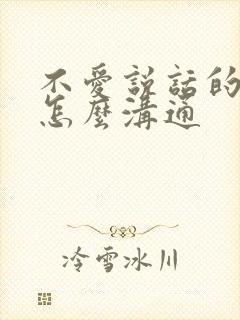 不愛説話的
怎麼溝通
冷雪冰川